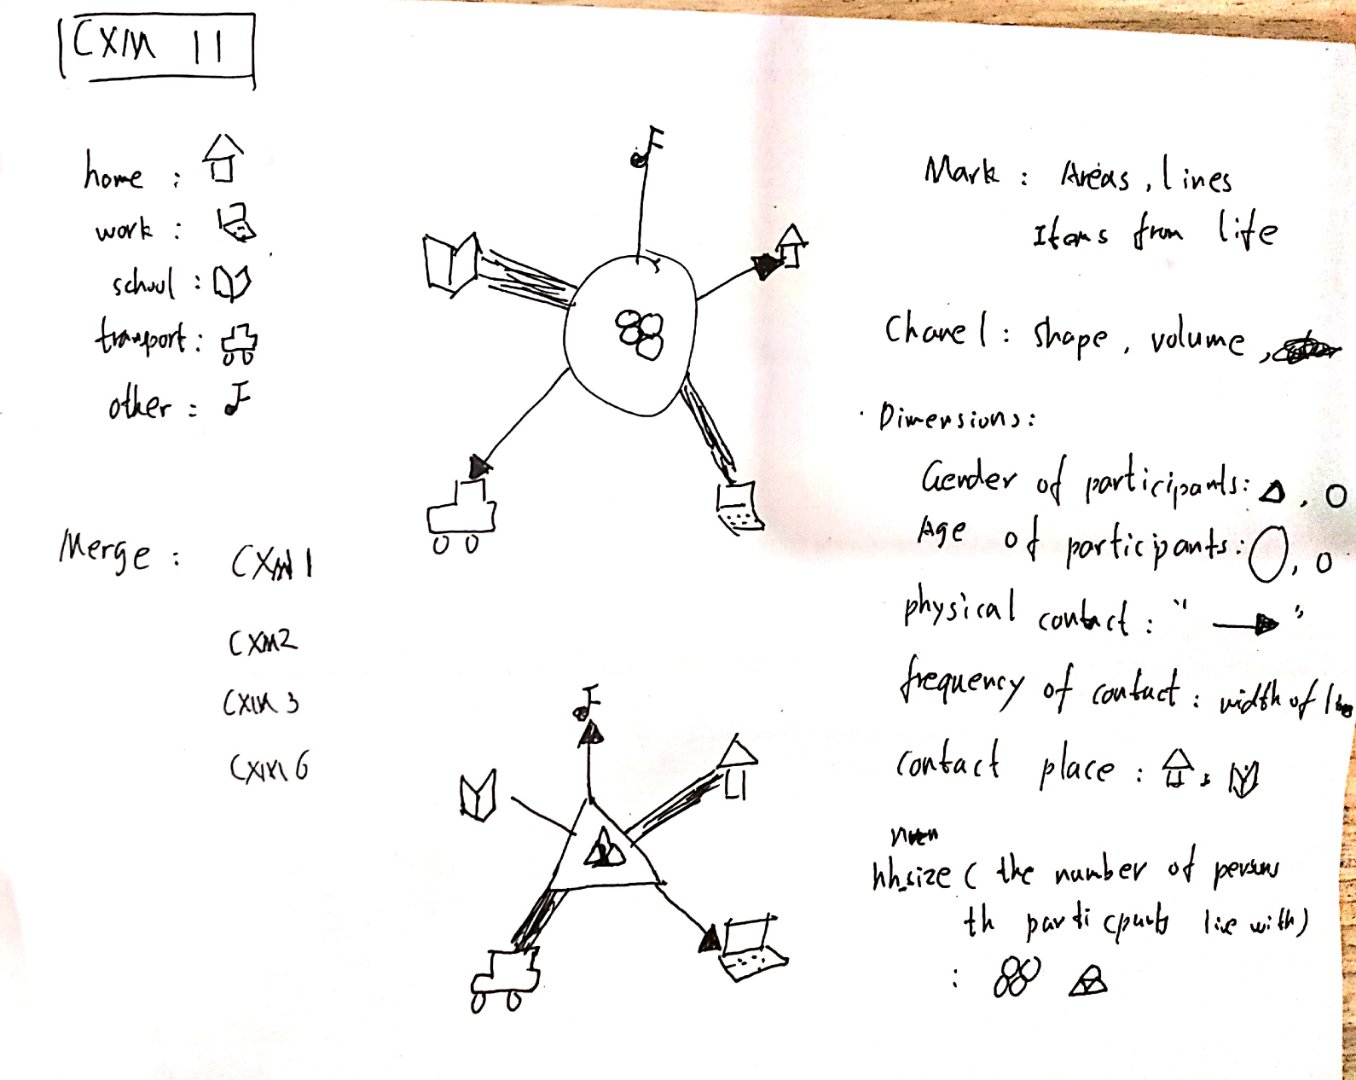 CXM 11
home :
work :
school :
transport :
other :
Merge : CXM 1
CXM2
CXM 3
CXM 6
Mark : Areas , lines
Items from life
Chanel : shape , volume ,
Dimensions :
Gender of participants : ,
Age of participants : ,
physical contact : " "
frequency of contact : width of
contact place : ,
hh_size ( the number of persons
th participants live with )
: